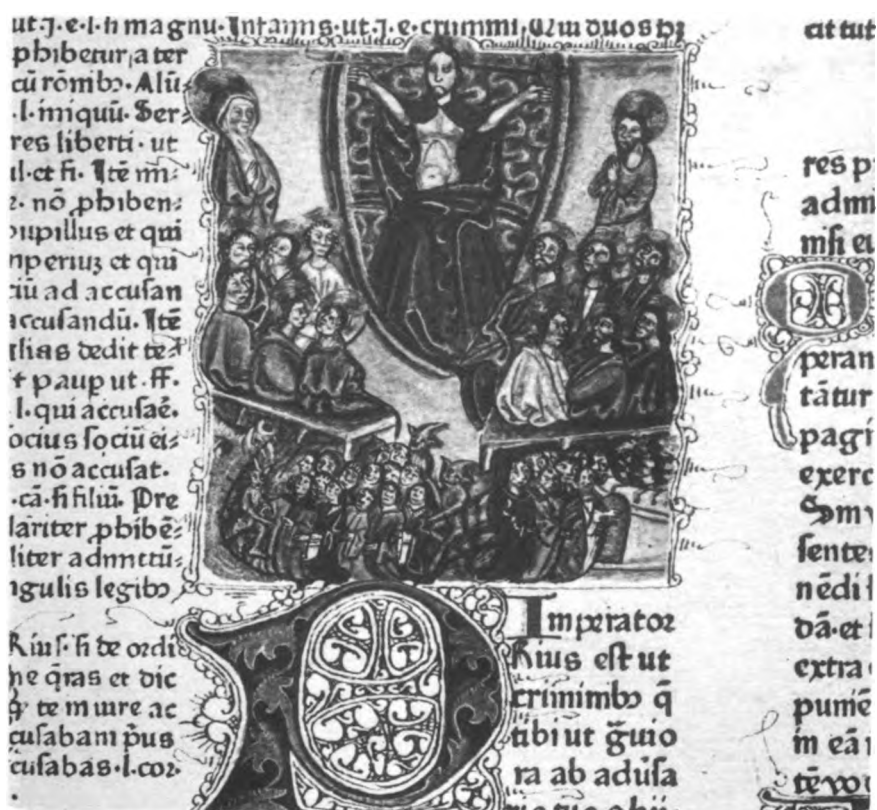 ut·J·e·l·hi magnu· Infamis·ut·J·e·crimini,
phibetur a ter
cū rōmibꝫ· Alū
·l·iniquū· Ser
res liberti· ut
ul·et fi· Itē mi
e· nō phiben
pupillus et qui
mperiuꝫ et qui
tiū ad accusan
accusandū· Itē
alias dedit te
t paup ut· ff·
l·qui accusaē·
ocius sociū ei
s nō accusat·
·cā·fi filiū· Pre
lariter phibē
liter admittū
ngulis legibꝫ
Rius· fi de ordi
ne q̄ras et dic
te in iure ac
cusabam p̄us
cusabas·l·cor·
Imperator
Rius est ut
criminibꝫ q̄
tibi ut ḡuio
ra ab adūsa
cit tut
res p
admi
nisi eu
peran
tātur
pagi
exerc
Som
sente
nēdi
dā·et
extra
punie
in eā
tē vo